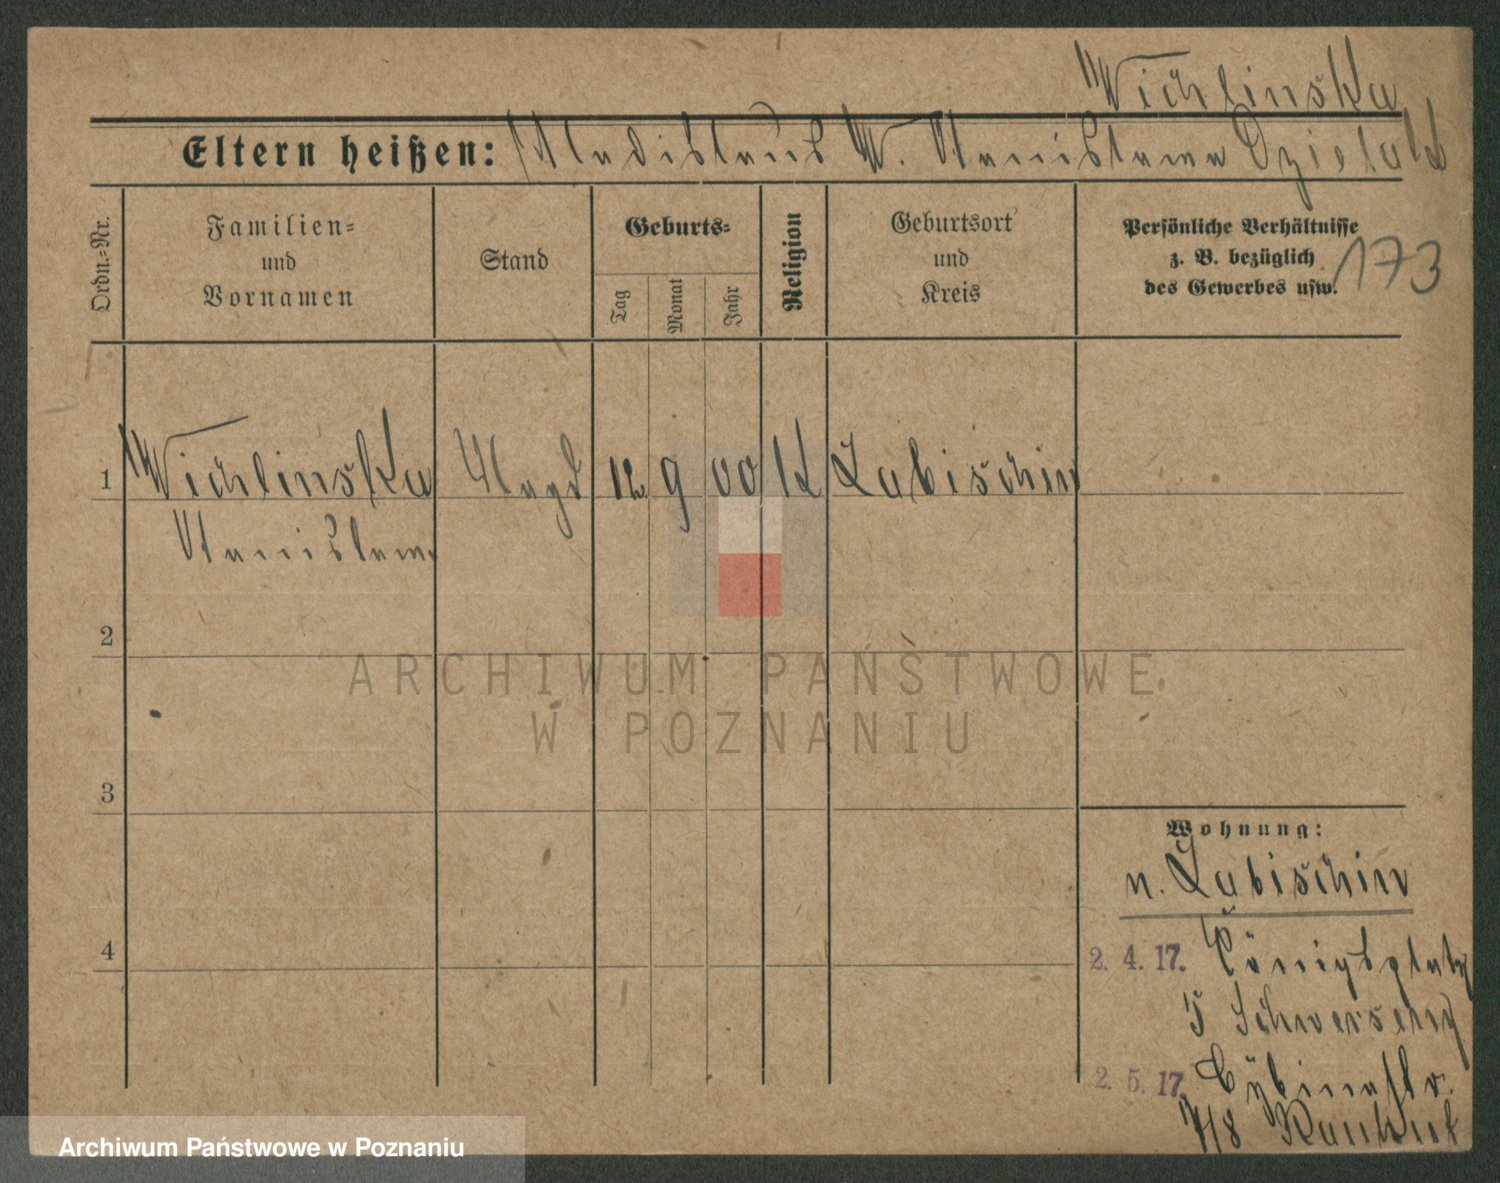 Wichlinska
Eltern heißen: Wladislaus W. Stanislawa
173
Ordn.-Nr.
Familien-
und
Vornamen
Stand
Geburts-
Tag
Monat
Jahr
Religion
Geburtsort
und
Kreis
Persönliche Verhältnisse
z. B. bezüglich
des Gewerbes usw.
1 Wichlinska Magd 12 9 00 K Labischin
Stanislawa
2
3
4
Wohnung:
n. Labischin
2. 4. 17. Königsplatz
5 Schwersenz
2. 5. 17. Cybinastr.
7/8
ARCHIWUM PAŃSTWOWE
W POZNANIU
Archiwum Państwowe w Poznaniu